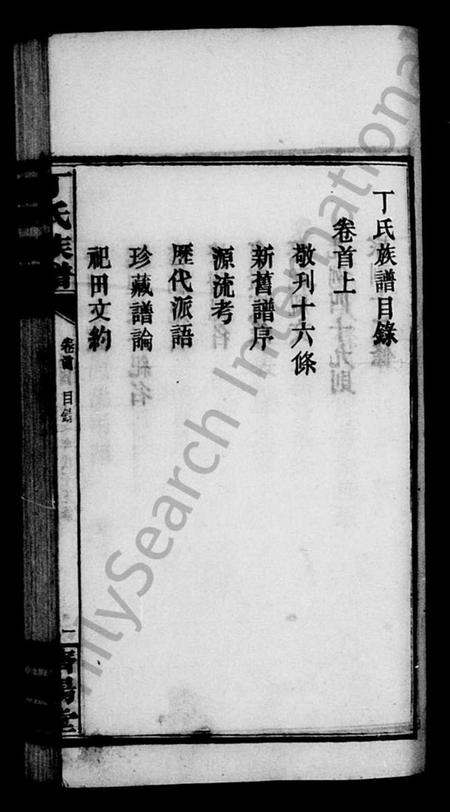 丁氏族譜目錄
卷首上
敬刊十六條
新舊譜序
源流考
歷代派語
珍藏譜論
祀田文約
丁氏族譜
卷首 目錄
一
濟陽堂
FamilySearch International